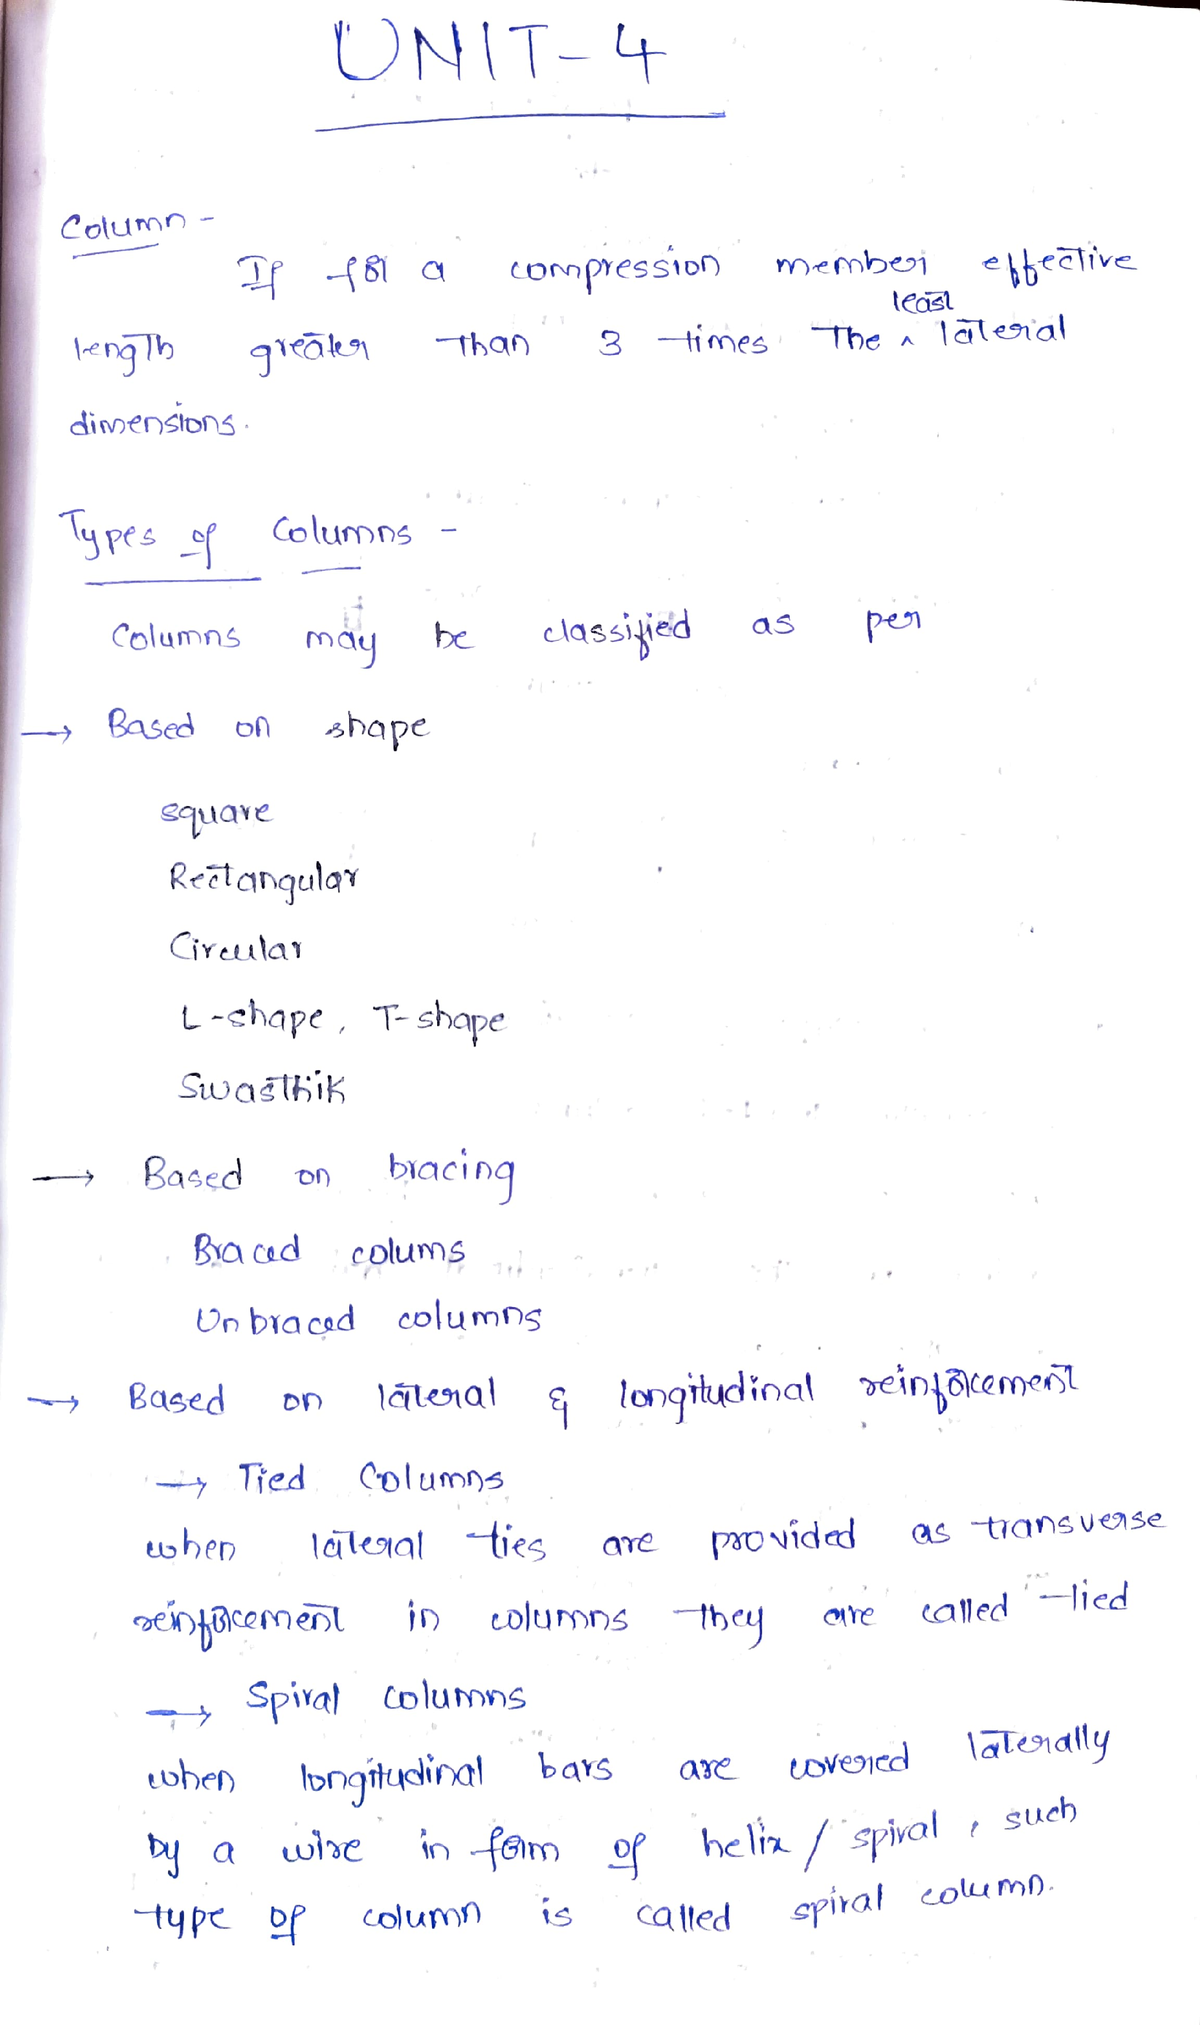 UNIT-4
Column -
If for a compression member effective
least
length greater than 3 times the ^ lateral
dimensions.
Types of Columns -
Columns may be classified as per
→ Based on shape
square
Rectangular
Circular
L-shape, T-shape
Swasthik
→ Based on bracing
Braced colums
Unbraced columns
→ Based on lateral & longitudinal reinforcement
→ Tied Columns
when lateral ties are provided as transverse
reinforcement in columns they are called tied
→ Spiral columns
when longitudinal bars are covered laterally
by a wire in form of helix / spiral, such
type of column is called spiral column.